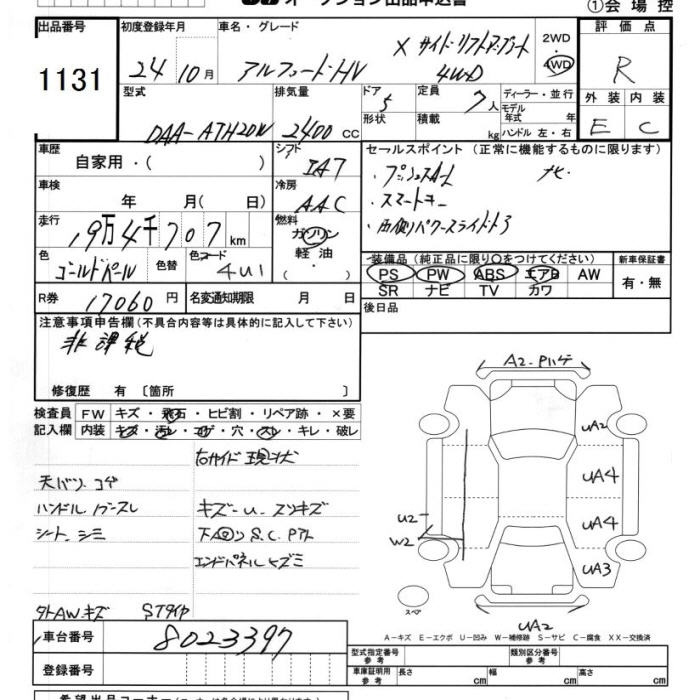 オークション出品申込書
①会場控
出品番号
1131
初度登録年月
24 10月
車名・グレード
アルファード・HV X サイドリフトアップシート
4WD
2WD
4WD
評価点
R
外装 内装
E C
型式
DAA-ATH20W
排気量
2400 CC
ドア 5
形状
定員 7人
積載 kg
ディーラー・並行
モデル年式 年
ハンドル 左・右
車歴
自家用・( )
シフト
IAT
セールスポイント (正常に機能するものに限ります)
・プッシュスタート ナビ・
・スマートキー
・両側パワースライドドア
車検
年 月( 日)
冷房
AAC
走行
19万4千707km
燃料
ガソリン
軽油
( ・ )
色
ゴールドパール
色替
色コード
4U1
装備品 (純正品に限り○をつけてください)
PS PW ABS エアB AW
SR ナビ TV カワ
新車保証書
有・無
R券 17060 円
名変通知期限 月 日
後日品
注意事項申告欄 (不具合内容等は具体的に記入して下さい)
非課税
修復歴 有 〔箇所 〕
検査員記入欄
FW キズ・飛石・ヒビ割・リペア跡・×要
内装 キズ・汚レ・コゲ・穴・スレ・キレ・破レ
右サイド 現状
天バリ コゲ
ハンドル
シート シミ
キズ-U-スリキズ
下 S.C.
エンドパネル
外AW.キズ
A2-
UA2
UA4
UA4
UA3
U2
W2
UA2
スペア
A-キズ E-エクボ U-凹み W-補修跡 S-サビ C-腐食 XX-交換済
車台番号
8023397
登録番号
型式指定番号 参考
類別区分番号 参考
車庫証明用 参考
長さ cm
幅 cm
高さ cm
希望出品コーナー